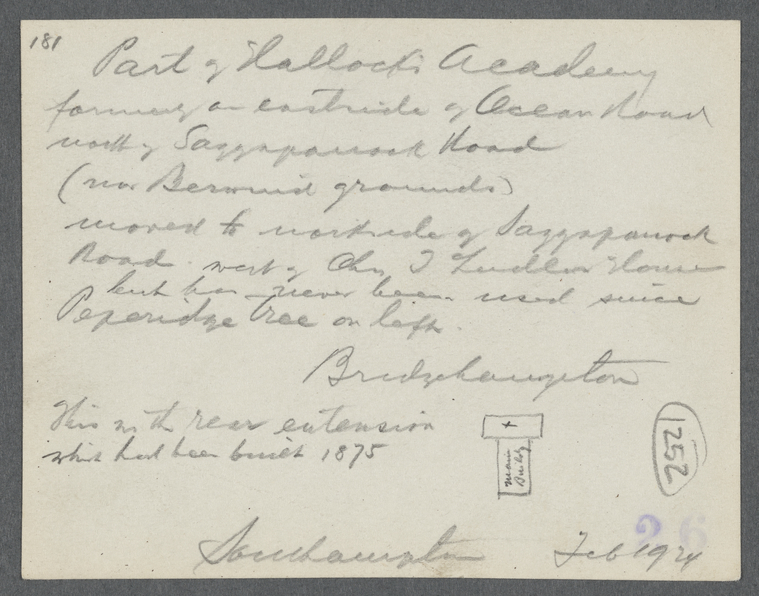 181
Part of Hallock's Academy
formerly on eastside of Ocean Road
north of Saggapanock Road
(now Berwind grounds)
moved to northside of Saggapanock
Road west of Chas T Ludlow House
but has never been used since
Peperidge Tree on left.
Bridgehampton
This is the rear extension
which had been built 1875
+
Main
Buildg
1252
26
Southampton Feb 1924